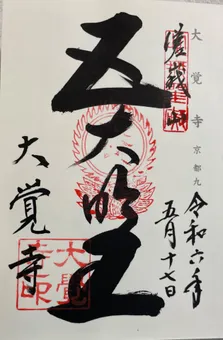 大覚寺 京都九
嵯峨山
令和六年
五月十七日
五大明王
大覚寺
大覺寺印